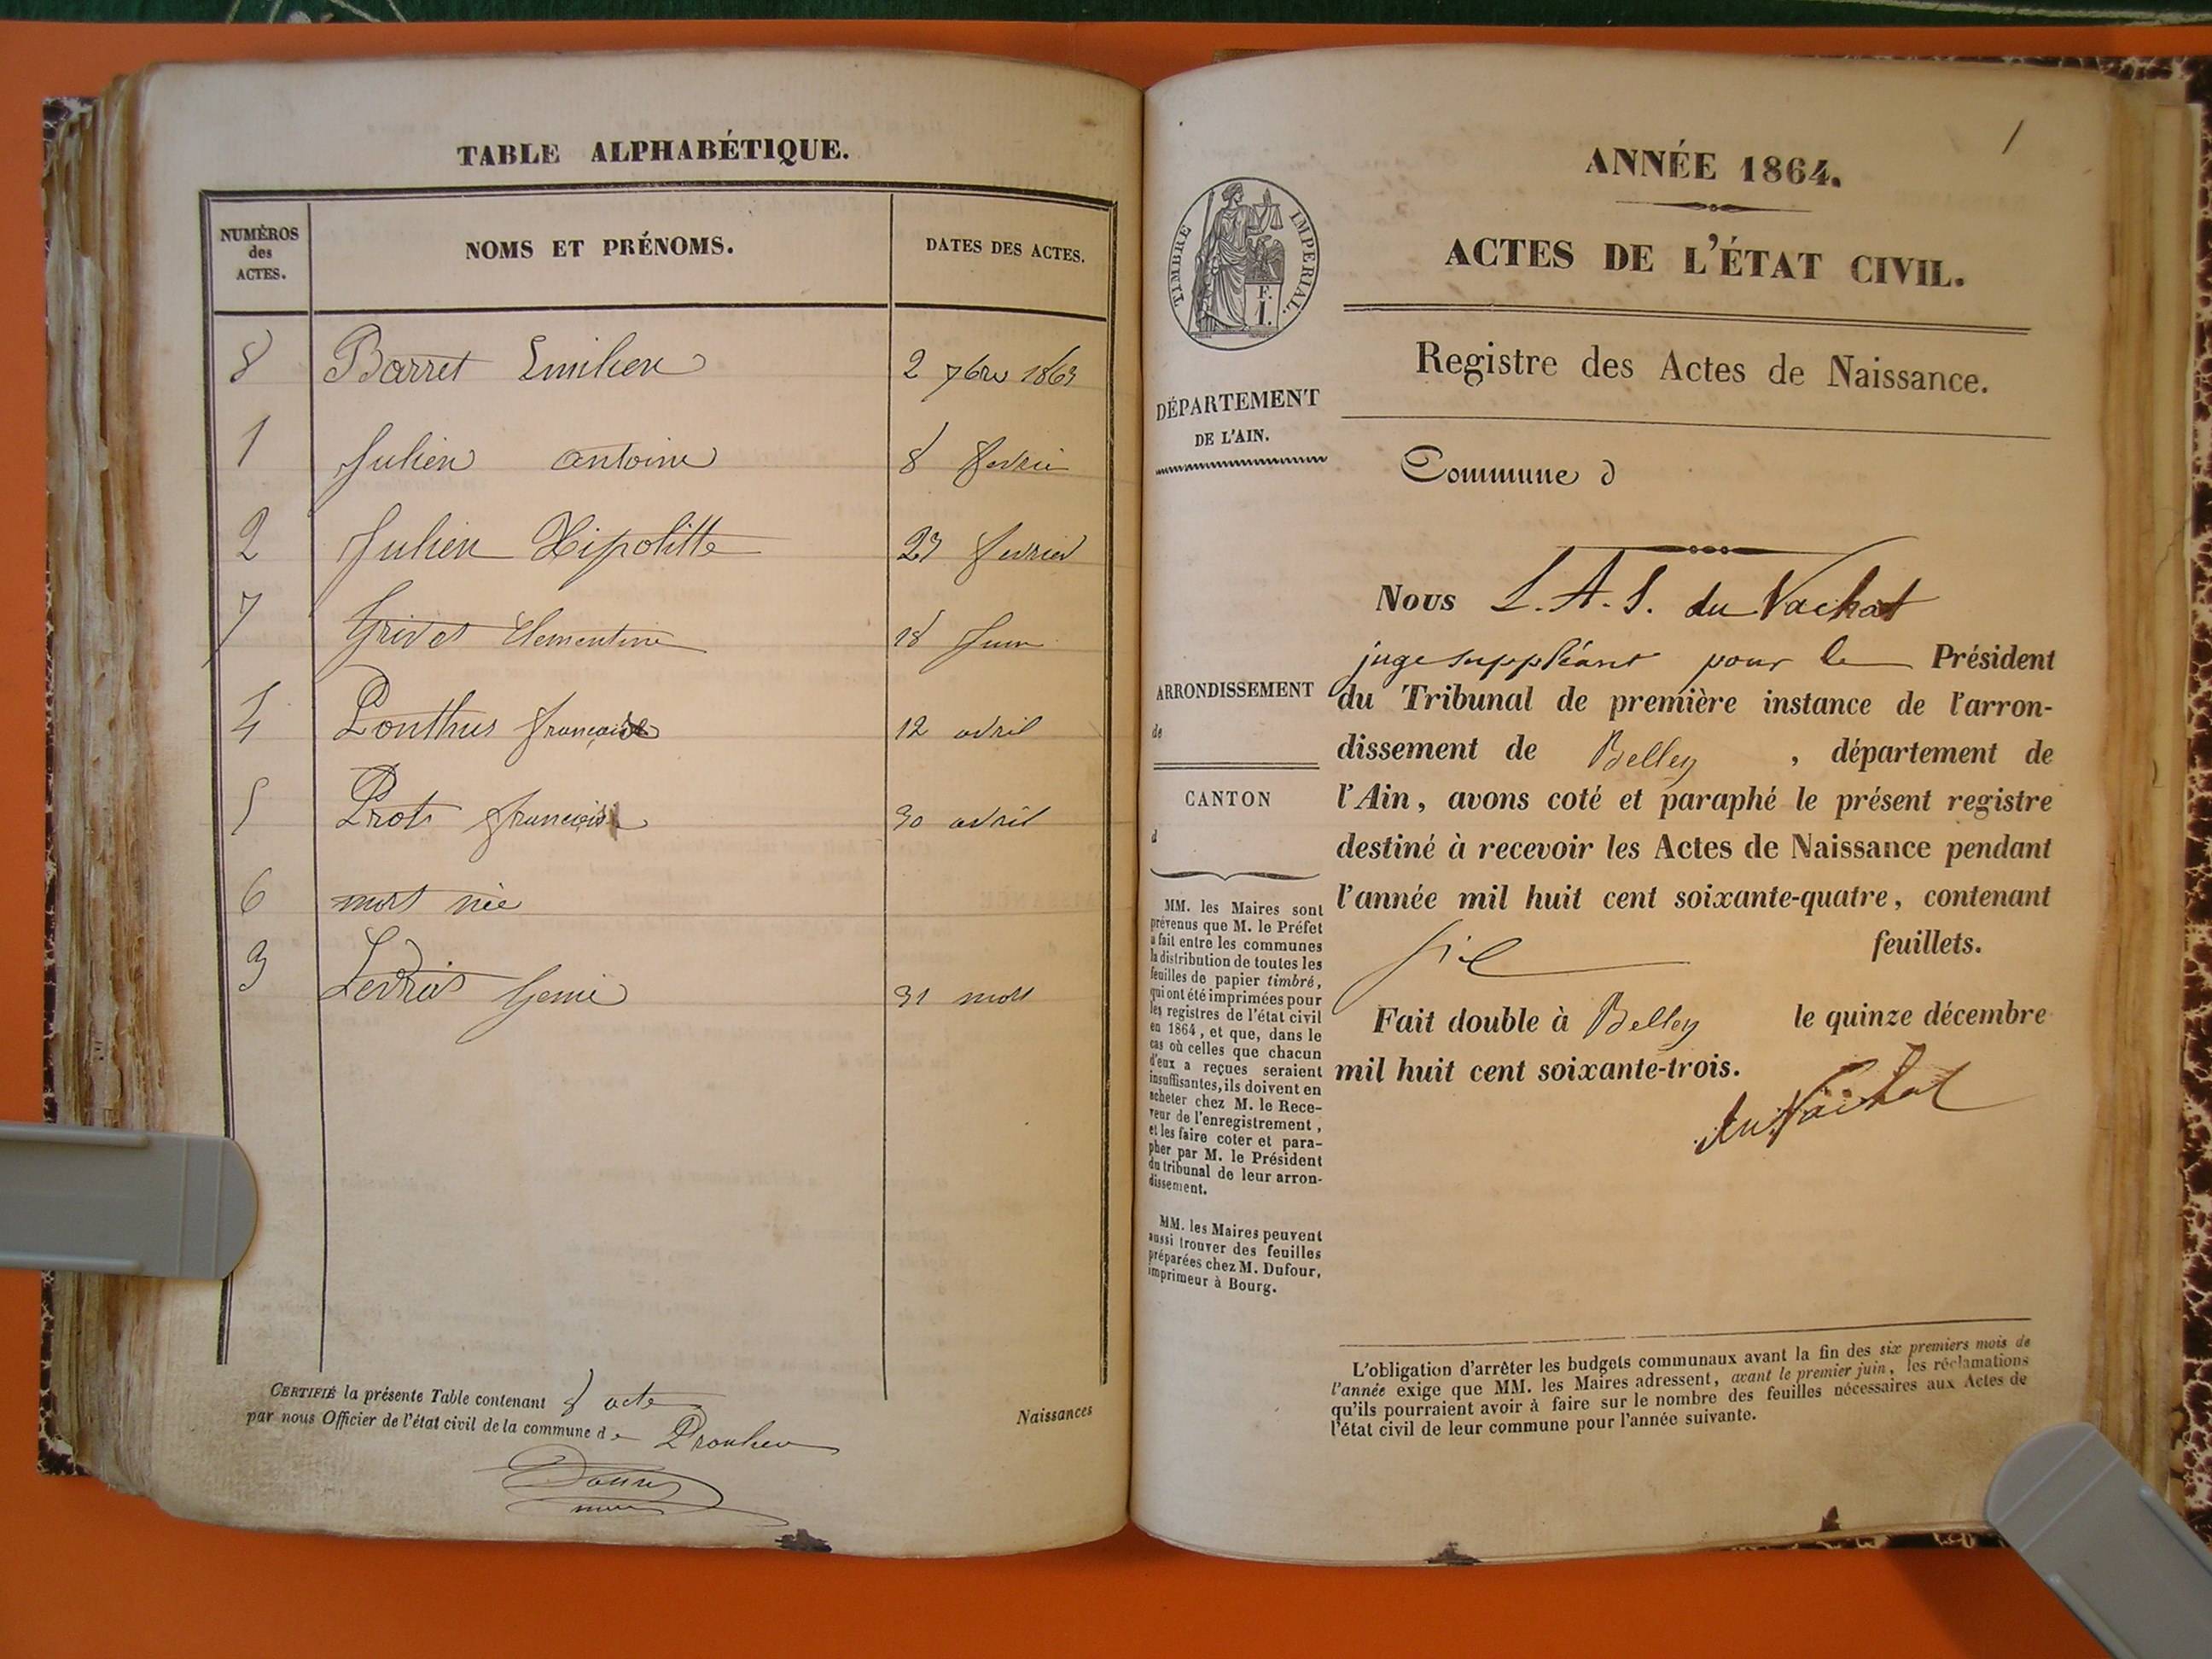 TABLE ALPHABÉTIQUE.
NUMÉROS des ACTES. NOMS ET PRÉNOMS. DATES DES ACTES.
8 Barret Emilien 2 7bre 1863
1 Julien antoine 8 fevrier
2 Julien Hipolitte 23 fevrier
7 Grivet Clementine 18 Juin
4 Ponthus francoise 12 avril
5 Prots francois 30 avril
6 mort née
3 31 mars
CERTIFIÉ la présente Table contenant 8 acte
par nous Officier de l'état civil de la commune de
maire
Naissances
1
ANNÉE 1864.
ACTES DE L'ÉTAT CIVIL.
TIMBRE IMPERIAL.
F.
1.
Registre des Actes de Naissance.
DÉPARTEMENT
DE L'AIN.
Commune d
Nous L. A. S. du Vachat
juge suppléant pour le Président
ARRONDISSEMENT
de
CANTON
d
du Tribunal de première instance de l'arron-
dissement de Belley , département de
l'Ain, avons coté et paraphé le présent registre
destiné à recevoir les Actes de Naissance pendant
l'année mil huit cent soixante-quatre, contenant
six feuillets.
Fait double à Belley le quinze décembre
mil huit cent soixante-trois.
du Vachat
MM. les Maires sont
prévenus que M. le Préfet
a fait entre les communes
la distribution de toutes les
feuilles de papier timbré,
qui ont été imprimées pour
les registres de l'état civil
en 1864, et que, dans le
cas où celles que chacun
d'eux a reçues seraient
insuffisantes, ils doivent en
acheter chez M. le Rece-
veur de l'enregistrement,
et les faire coter et para-
pher par M. le Président
du tribunal de leur arron-
dissement.
MM. les Maires peuvent
aussi trouver des feuilles
préparées chez M. Dufour,
imprimeur à Bourg.
L'obligation d'arrêter les budgets communaux avant la fin des six premiers mois de
l'année exige que MM. les Maires adressent, avant le premier juin, les réclamations
qu'ils pourraient avoir à faire sur le nombre des feuilles nécessaires aux Actes de
l'état civil de leur commune pour l'année suivante.